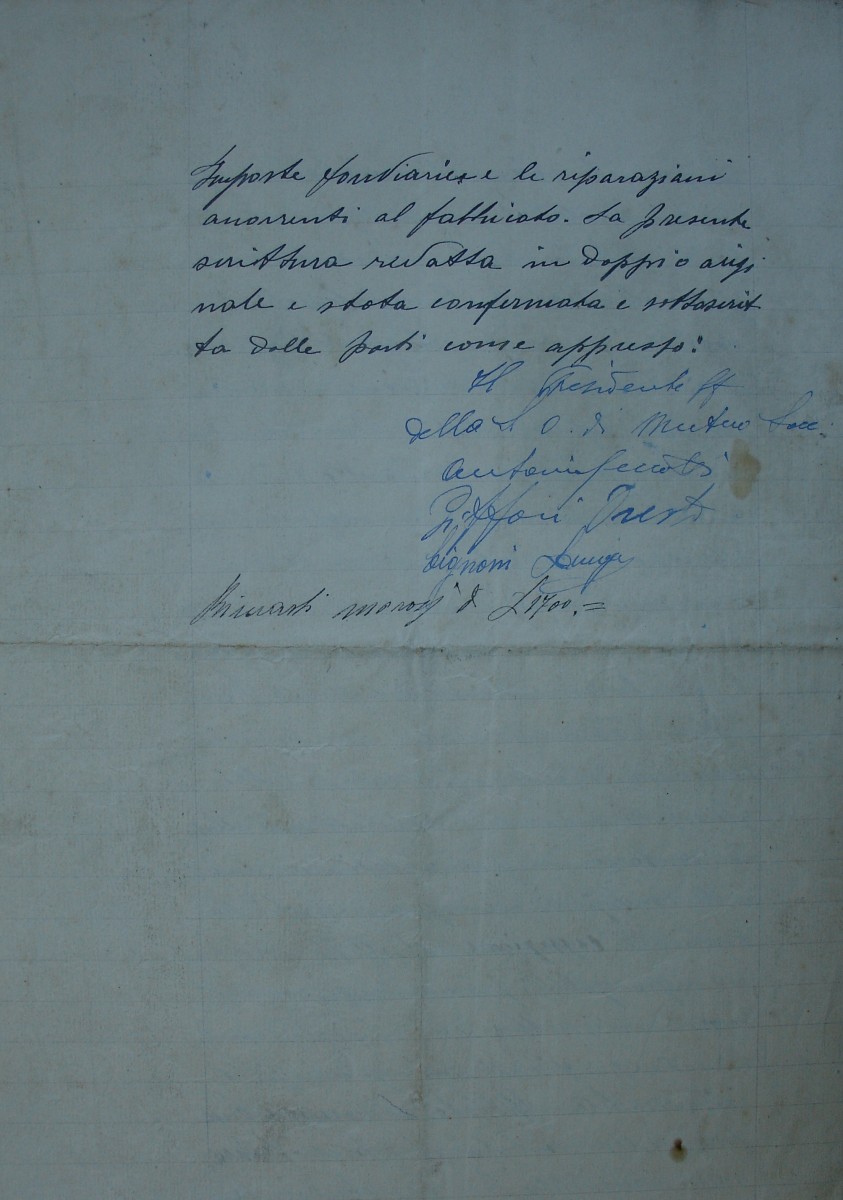 Imposte fondiarie e le riparazioni
occorrenti al fabbricato. La presente
scrittura redatta in doppio origi
nale e stata confermata e sottoscrit
ta dalle parti come appresso:
Il Presidente ff
della S. O. di Mutuo Socc.
Antonio
Giffoni Oreste
Luigi
di £ 1700.=